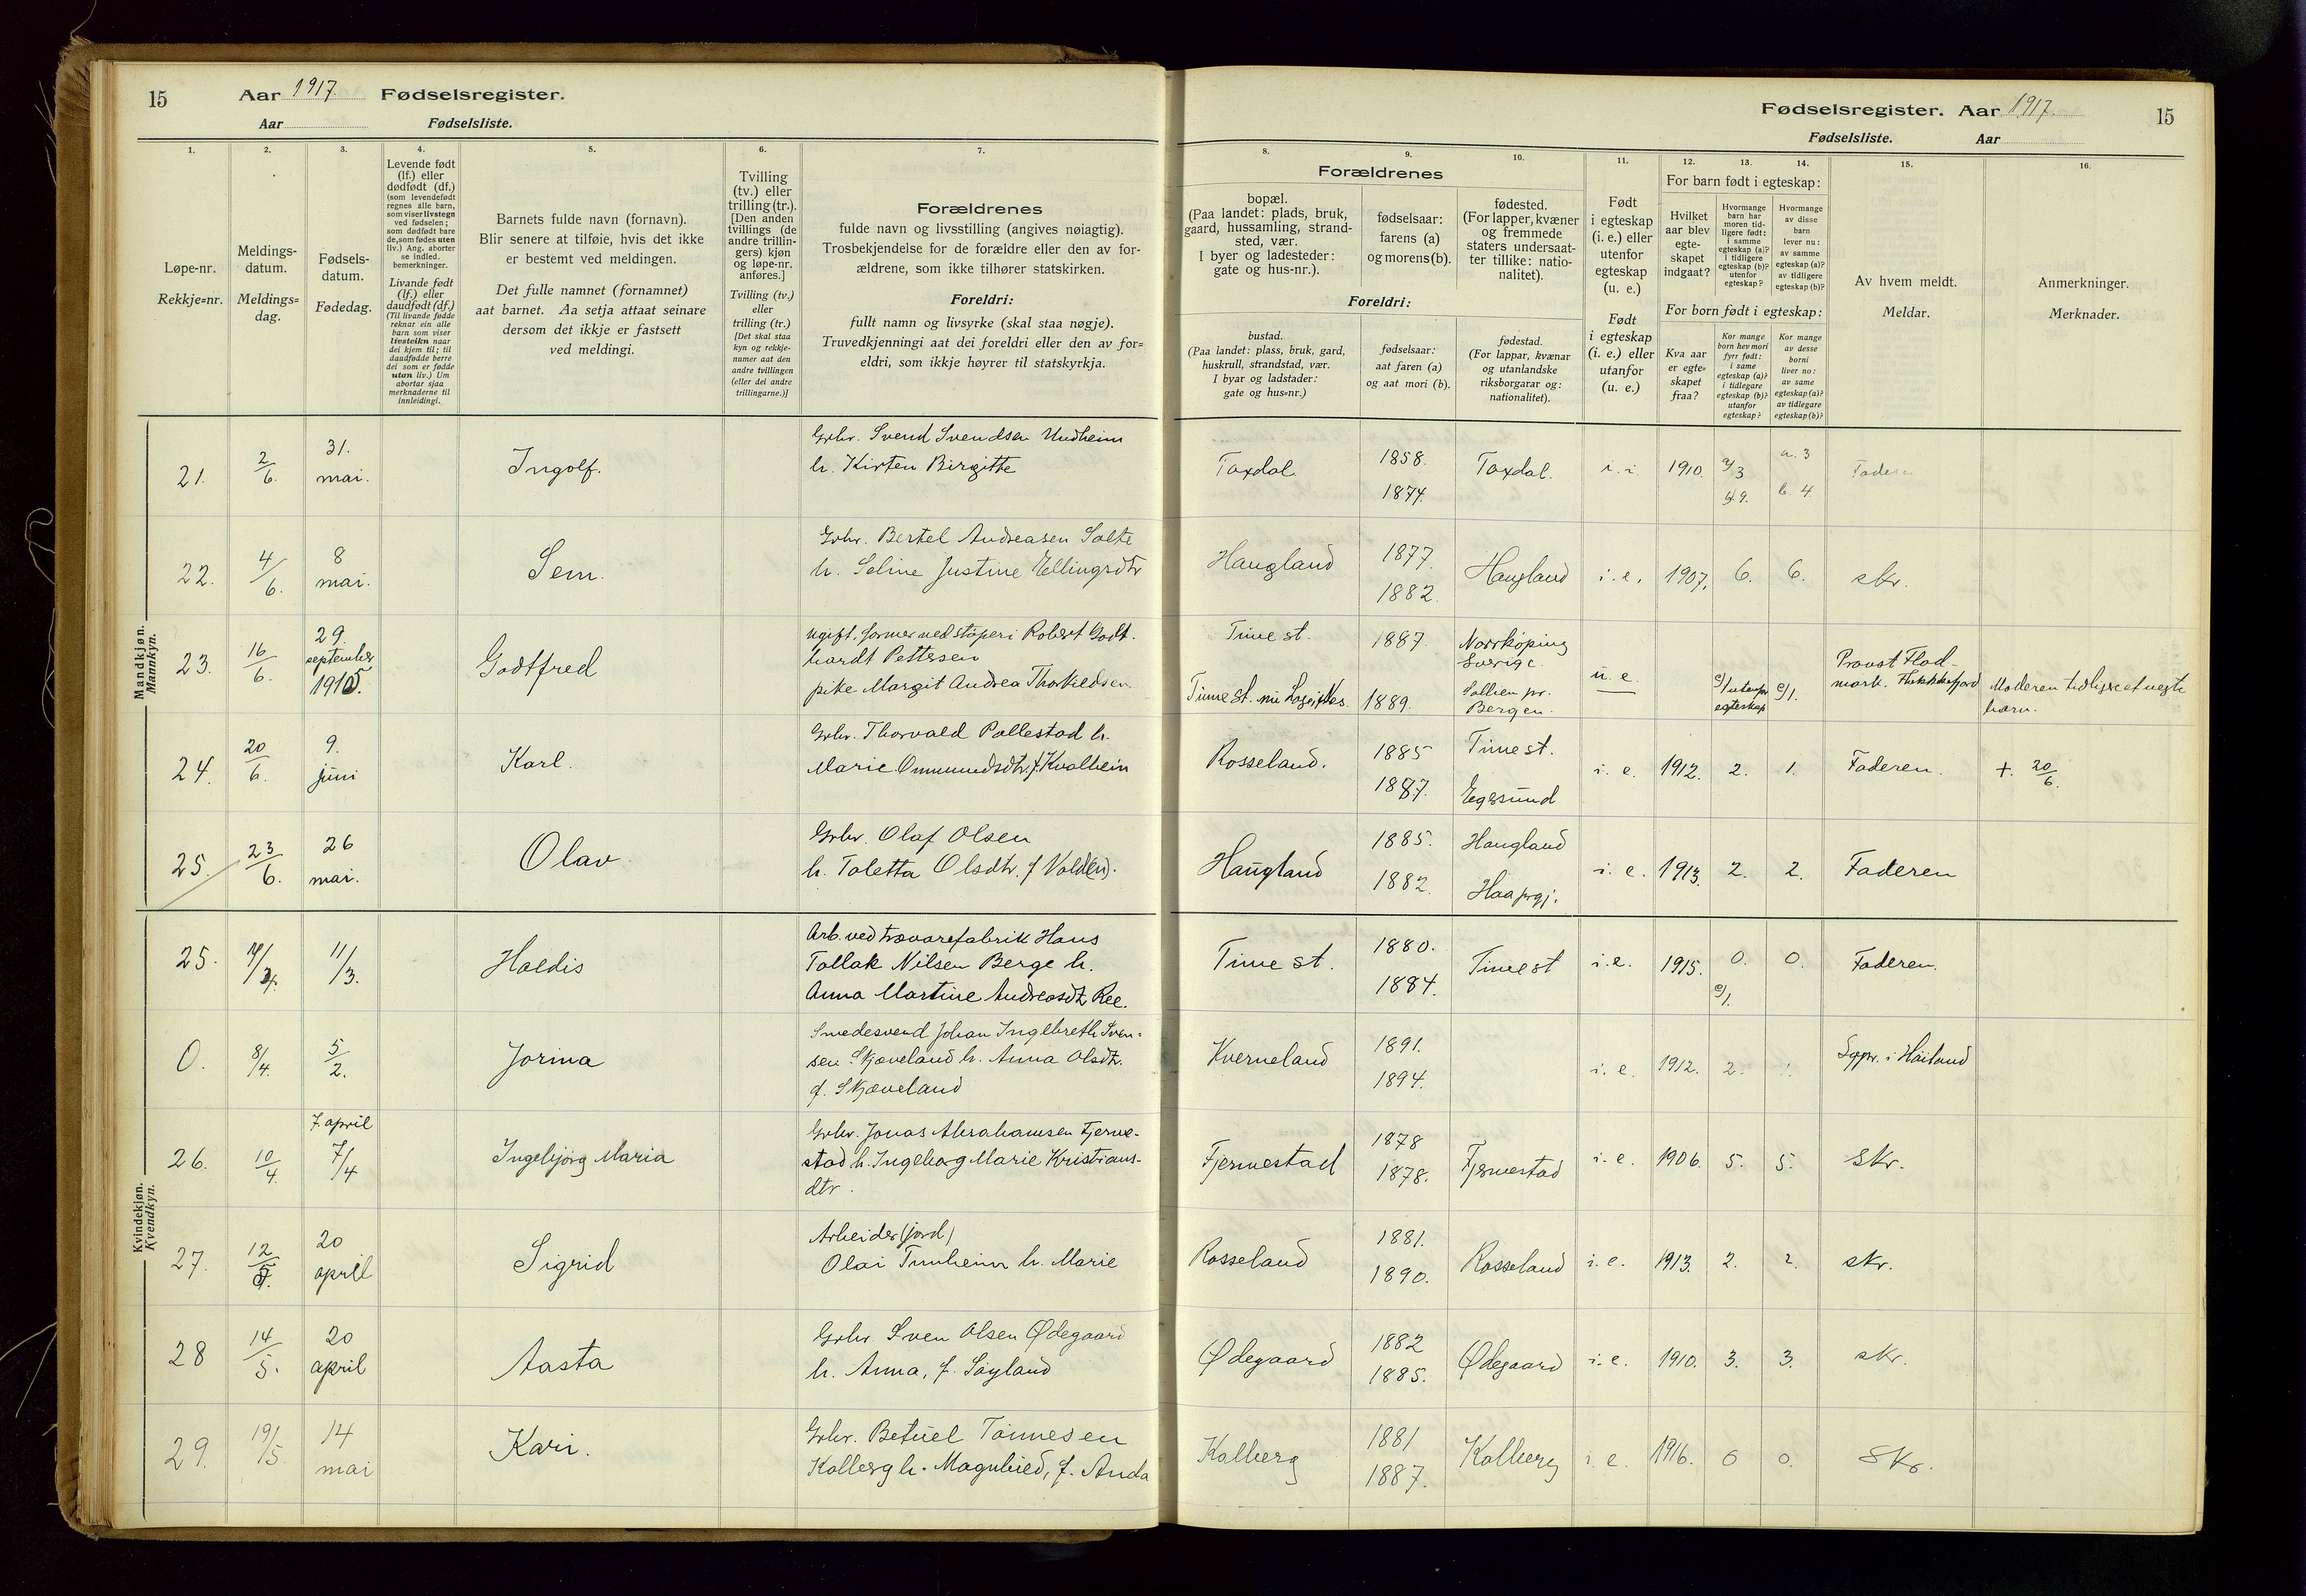 15 Aar 1917. Fødselsregister.
Aar Fødselsliste.
1. 2. 3. 4. 5. 6. 7.
Løpe-nr.
Rekkje=nr.
Meldings-
datum.
Meldings=
dag.
Fødsels-
datum.
Fødedag.
Levende født
(lf.) eller
dødfødt (df.)
(som levendefødt
regnes alle barn,
som viser livstegn
ved fødselen;
som dødfødt bare
de, som fødes uten
liv.) Ang. aborter
se indled.
bemerkninger.
Livande født
(lf.) eller
daudfødt (df.)
(Til livande fødde
reknar ein alle
born som viser
livsteikn naar
dei kjem til; til
daudfødde berre
dei som er fødde
utan liv.) Um
abortar sjaa
merknaderne til
innleidingi.
Barnets fulde navn (fornavn).
Blir senere at tilføie, hvis det ikke
er bestemt ved meldingen.
Det fulle namnet (fornamnet)
aat barnet. Aa setja attaat seinare
dersom det ikkje er fastsett
ved meldingi.
Tvilling
(tv.) eller
trilling (tr.).
[Den anden
tvillings (de
andre trillin-
gers) kjøn
og løpe-nr.
anføres.]
Tvilling (tv.)
eller
trilling (tr.)
[Det skal staa
kyn og rekkje-
numer aat den
andre tvillingen
(eller dei andre
trillingarne.)]
Forældrenes
fulde navn og livsstilling (angives nøiagtig).
Trosbekjendelse for de forældre eller den av for-
ældrene, som ikke tilhører statskirken.
Foreldri:
fullt namn og livsyrke (skal staa nøgje).
Truvedkjenningi aat dei foreldri eller den av for=
eldri, som ikkje høyrer til statskyrkja.
Mandkjøn.
Mannkyn.
21. 2/6. 31. mai. Ingolf. Grbr. Svend Svendsen Undheim
h. Kirsten Birgitte
22. 4/6. 8 mai. Sem. Grbr. Bertel Andreasen Salte
h. Seline Justine Ellingsdtr
23. 16/6. 29. september 1915. Godtfred ugift, former ved støperi Robert Godt-
hardt Pettersen
pike Margit Andrea Thorkildsen.
24. 20/6. 9. juni Karl. Grbr. Thorvald Pollestad h.
Marie Ommundsdtr. f. Kvalheim
25. 23/6. 26 mai. Olav. Grbr. Olaf Olsen
h. Toletta Olsdtr. f Vold(en).
Kvindekjøn.
Kvendkyn.
25. 11/3. Haldis Arb. ved trævarefabrik Hans
Tollak Nilsen Berge h.
Anna Martine Andreasdtr Ree.
0. 8/4. 5/2. Jorina Smedesvend Johan Ingebreth Sven-
sen Skjæveland h. Anna Olsdtr.
f. Skjæveland
26. 10/4. 7 april 7/4 Ingebjørg Maria Grbr. Jonas Abrahamsen Fjerme-
stad h. Ingeborg Marie Kristians-
dtr.
27. 12/5. 20 april Sigrid Arbeider (jord)
Olai Tunheim h. Marie
28 14/5. 20 april Aasta Grbr. Sven Olsen Ødegaard
h. Anna, f. Søyland
29. 19/5. 14 mai Kari. Grbr. Betuel Tønnesen
Kalberg h. Magnhild, f. Anda
Fødselsregister. Aar 1917. 15
Fødselsliste. Aar
8. 9. 10. 11. 12. 13. 14. 15. 16.
Forældrenes
bopæl.
(Paa landet: plads, bruk,
gaard, hussamling, strand-
sted, vær.
I byer og ladesteder:
gate og hus-nr.).
fødselsaar:
farens (a)
og morens (b).
fødested.
(For lapper, kvæner
og fremmede
staters undersaat-
ter tillike: natio-
nalitet).
Foreldri:
bustad.
(Paa landet: plass, bruk, gard,
huskrull, strandstad, vær.
I byar og ladstader:
gate og hus=nr.)
fødselsaar:
aat faren (a)
og aat mori (b).
fødestad.
(For lappar, kvænar
og utanlandske
riksborgarar og:
nationalitet).
Født
i egteskap
(i. e.) eller
utenfor
egteskap
(u. e.)
Født
i egteskap
(i. e.) eller
utanfor
(u. e.)
For barn født i egteskap:
Hvilket
aar blev
egte-
skapet
indgaat?
Hvormange
barn har
moren tid-
ligere født:
i samme
egteskap (a)?
i tidligere
egteskap (b)?
utenfor
egteskap?
Hvormange
av disse
barn
lever nu:
av samme
egteskap (a)?
av tidligere
egteskap (b)?
For born født i egteskap:
Kva aar
er egte=
skapet
fraa?
Kor mange
born hev mori
fyrr født:
i same
egteskap (a)?
i tidlegare
egteskap (b)?
utanfor
egteskap?
Kor mange
av desse
borni
liver no:
av same
egteskap (a)?
av tidlegare
egteskap (b)?
Av hvem meldt.
Meldar.
Anmerkninger.
Merknader.
Taxdal. 1858. 1874. Taxdal. 1910. a/3 b. 9. a. 3 b. 4. Faderen
Haugland 1877. 1882. Haugland i. e. 1907. 6. 6. skr.
Time st. 1887. Norrkøping
Sverige.
1889. Bergen. u. e. c/1 utenfor
egteskap c/1. Provst Flod-
mark. Flekkefjord Moderen tidligere et uegte
barn.
Rosseland. 1885 1887. Time st. Egersund i. e. 1912. 2. 1. Faderen. +. 20/6.
Haugland 1885. 1882. Haugland Haa prgj. i. e. 1913. 2. 2. Faderen
Time st. 1880. 1884. Time st i. e. 1915. 0. c/1. 0. Faderen.
Kverneland 1891. 1894. i. e. 1912. 2. 1. Sgpr. i Høiland
Fjermestad 1878 1878. Fjermestad i. e. 1906. 5. 5. Skr.
Rosseland 1881. 1890. Rosseland i. e. 1913. 2. 2. skr.
Ødegaard 1882 1885. Ødegaard i. e. 1910. 3. 3. skr.
Kalberg 1881 1887. Kalberg i. e. 1916. 0 0. Skr.